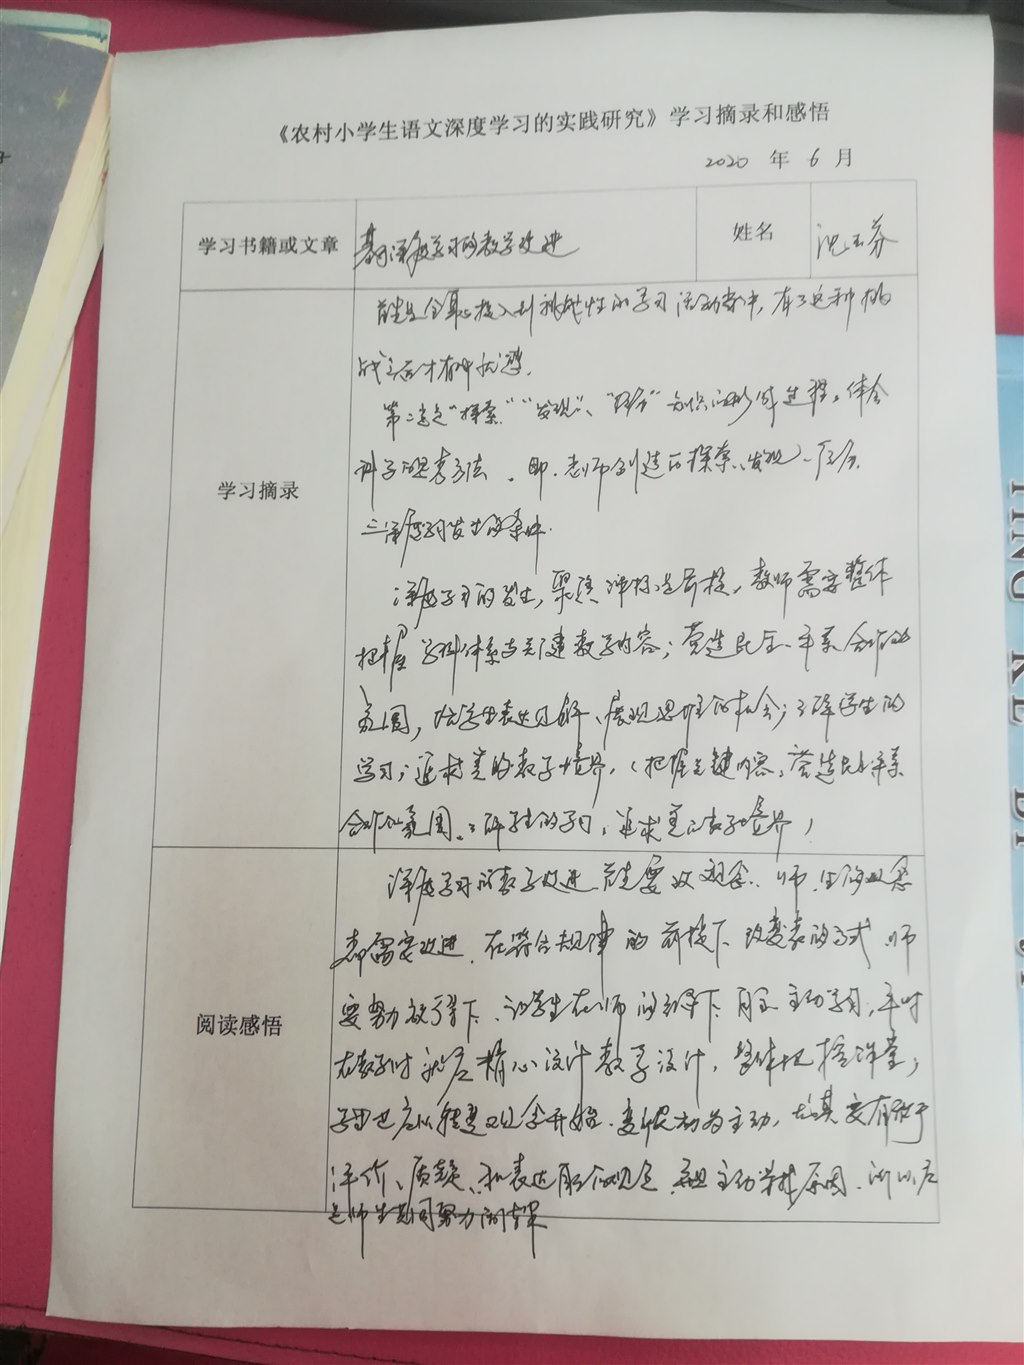 《农村小学生语文深度学习的实践研究》学习摘录和感悟
2020 年 6 月
学习书籍或文章 基于深度学习的教学改进 姓名
学习摘录
首先全身心投入到挑战性的学习活动当中，有了这种挑
战之后才有
第二是“探索”“发现”、“经历”知识的形成过程。体会
学科的思考方法。即，老师创造的探索、发现、经历。
三深度学习发生的条件。
深度学习的发生，聚焦 是前提，教师需要整体
把握学科体系与关键教学内容；营造民主、平等、合作的
氛围，给学生表达见解、展现思维的机会；了解学生的
学习；追求美的教学境界，（把握关键内容，营造民主平等
合作的氛围。了解学生的学习，追求美的教学境界）
阅读感悟
深度学习的教学改进首先要改观念。师、生的观念
都需要改进，在符合规律的前提下，改变教的方式，师
要努力 下，让学生在师的引导下，自主、主动学习，平时
在教学时 应精心设计教学设计，整体把握课堂，
学生也应从转变观念开始。变被动为主动，尤其要有敢于
评价、质疑、和表达 的观念， 主动 原因，所以应
是师生共同努力的结果
TING KE